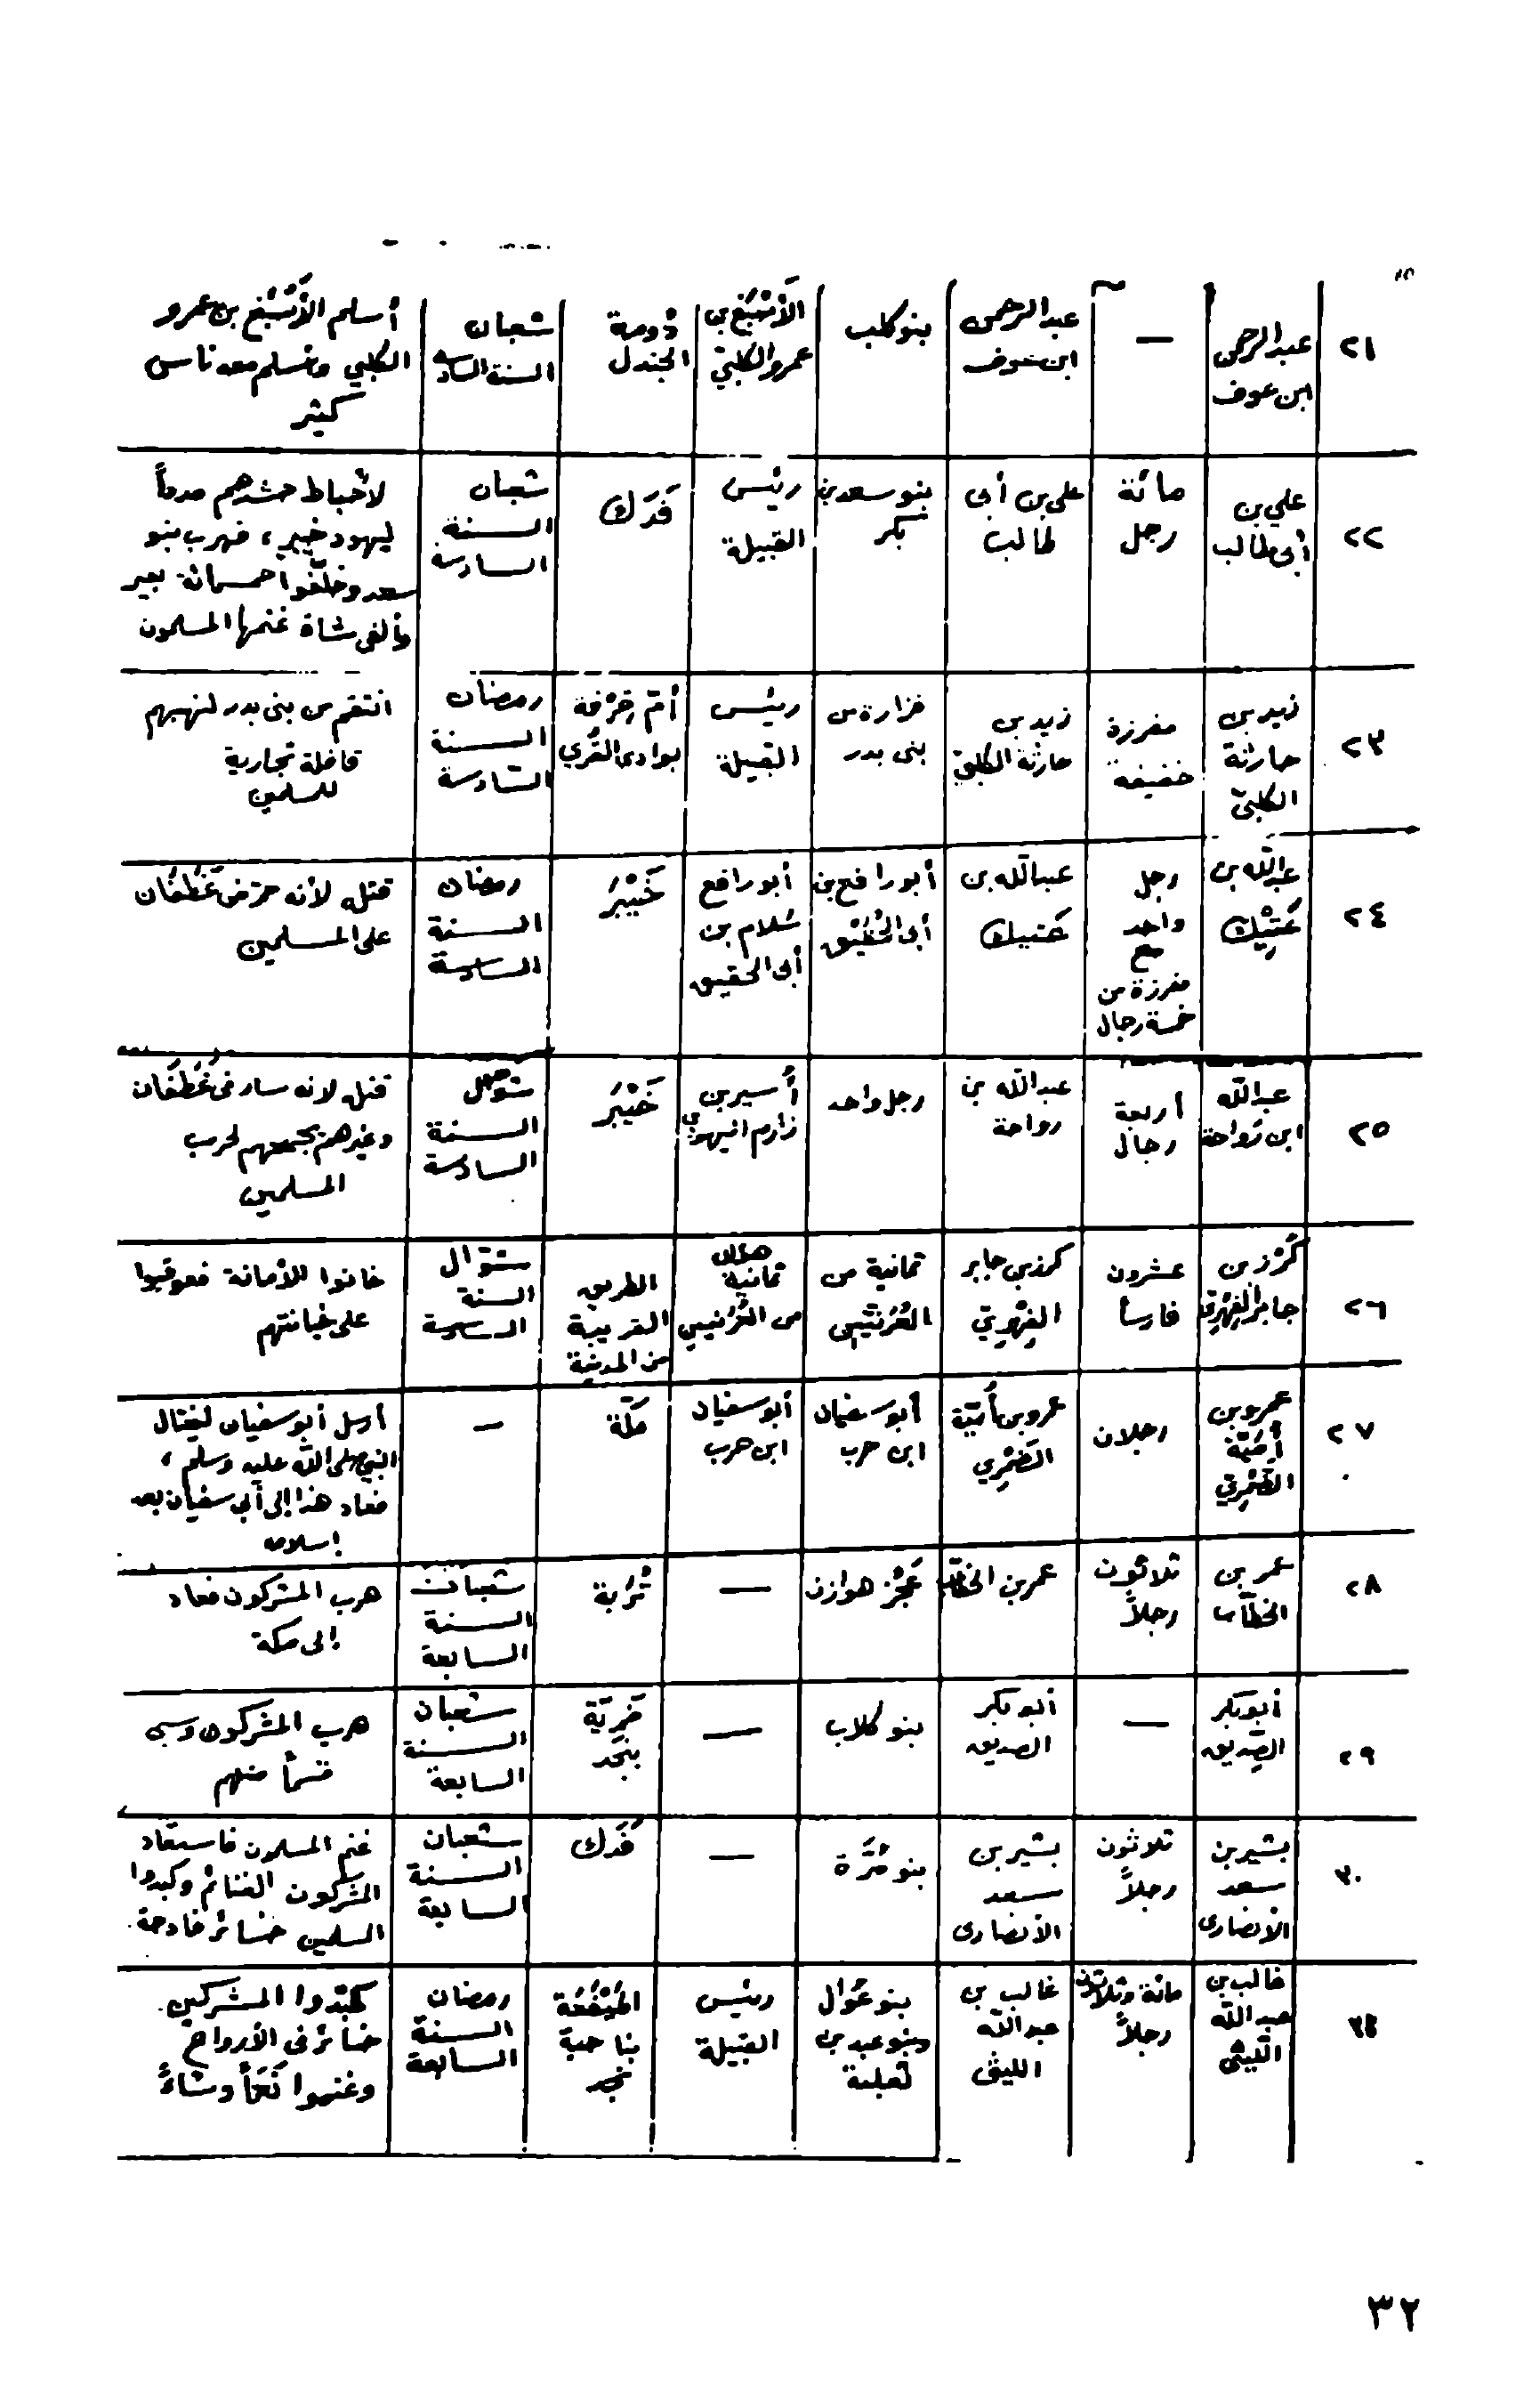 ٢١
عبدالرحمن
ابن عوف
—
عبدالرحمن
ابن عوف
بنو كلب
الأَصْبَغ بن
عمرو الكلبيّ
دُومة
الجندل
شعبان
السنة السادسة
أسلم الأَصْبَغ بن عمرو
الكلبي وأسلم معه ناس
كثير
٢٢
علي بن
أبى طالب
مائة
رجل
علي بن أبى
طالب
بنو سعد بن
بكر
رئيس
القبيلة
فَدَك
شعبان
السنة
السادسة
لإحباط حشدهم مدداً
ليهود خيبر، فهرب بنو
سعد وخلّفوا خمسمائة بعير
وألفى شاة غنمها المسلمون
٢٣
زيد بن
حارثة
الكلبيّ
مفرزة
خفيفة
زيد بن
حارثة الكلبيّ
فزارة من
بنى بدر
رئيس
القبيلة
أمّ قِرْفة
بوادى القُرى
رمضان
السنة
السّادسة
انتقم من بنى بدر لنهبهم
قافلة تجارية
للمسلمين
٢٤
عبدالله بن
عَتِيْك
رجل
واحد
مع
مفرزة من
خمسة رجال
عبدالله بن
عتيك
أبو رافع بن
أبى الحُقَيْق
أبو رافع
سَلام بن
أبى الحقيق
خَيْبَرُ
رمضان
السنة
السادسة
قتله لأنه حرّض غَطَفَان
على المسلمين
٢٥
عبدالله
ابن رَواحة
أربعة
رجال
عبدالله بن
رواحة
رجل واحد
أُسير بن
زارم اليهودي
خَيْبَرُ
شوال
السنة
السادسة
قتله لانه سار فى غَطَفَان
وغيرهم يجمعهم لحرب
المسلمين
٢٦
كُرْز بن
جابر الفِهْرِيّ
عشرون
فارساً
كرز بن جابر
الفِهْريّ
ثمانية من
العُرَنيّين
ثمانية
من العُرَنيين
الطريق
القريبة
من المدينة
شوّال
السنة
السادسة
خانوا للأمانة فعوقبوا
على خيانتهم
٢٧
عمرو بن
أُمَيّة
الضَّمْرِيّ
رجلان
عمرو بن أُمَيّة
الضَّمْرِي
أبو سفيان
ابن حرب
أبو سفيان
ابن حرب
مكّة
—
أرسل أبو سفيان ليغتال
النبي صلى الله عليه وسلم،
فعاد هذا إلى أبي سفيان بعد
إسلامه
٢٨
عمر بن
الخطّاب
ثلاثون
رجلاً
عمر بن الخطّاب
عَجُز هوازن
—
تُرَابة
شعبان
السنة
السابعة
هرب المشركون فعاد
إلى مكة
٢٩
أبو بكر
الصّدِيق
—
أبو بكر
الصديق
بنو كلاب
—
ضَرِيّة
بنَجد
شعبان
السنة
السابعة
هرب المشركون وسبى
قسماً منهم
٣٠
بشير بن
سعد
الأنصارى
ثلاثون
رجلاً
بشير بن
سعد
الأنصارى
بنو مُرَّة
—
فَدَك
شعبان
السنة
السابعة
غنم المسلمون فاستعاد
المشركون الغنائم وكبدوا
المسلمين خسائر فادحة
غالب بن
عبدالله
اللّيثي
مائة وثلاثون
رجلاً
غالب بن
عبدالله
الليثى
بنو عُوَال
وبنو عبد بن
ثعلبة
رئيس
القبيلة
المَيْفَعَة
بناحية
نجد
رمضان
السنة
السابعة
كبّدوا المشركين
خسائر فى الأرواح
وغنموا نَعَماً وشاءً
٣٢